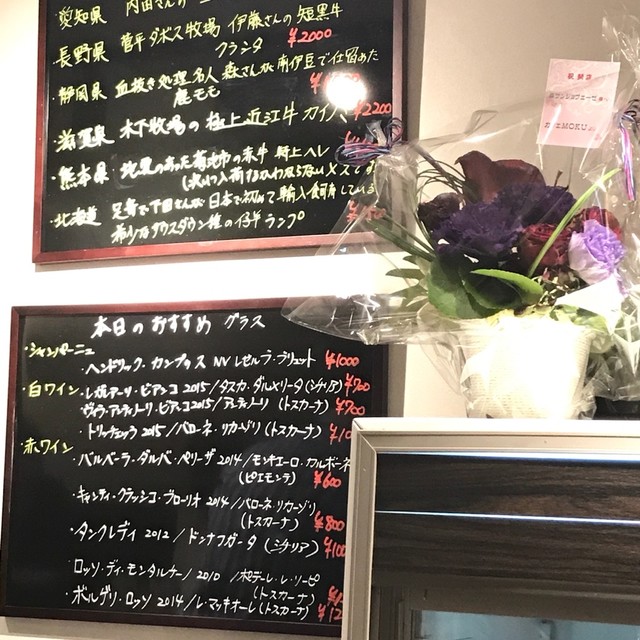 愛知県 内田さんの
長野県 菅平ダボス牧場 伊藤さんの短黒牛
クランタ ¥2000
静岡県 血抜き処理名人 森さんが南伊豆で仕留めた
鹿モモ
滋賀県 木下牧場の極上近江牛 カイノミ ¥2200
熊本県 地震のあった菊池市の赤牛 特上ヘレ
北海道 足寄で下田さんが日本で初めて輸入飼育している
希少なサウスダウン種の仔羊 ランプ
祝開店
MOKU
本日のおすすめ グラス
・シャンパーニュ
・ヘンドリック・カンプス NV レゼルヴ・ブリュット ¥1000
・白ワイン ・レガアーリ・ビアンコ 2015/タスカ・ダルメリータ(シチリア) ¥700
・ヴィラ・アンティノーリ・ビアンコ 2015/アンティノーリ(トスカーナ) ¥700
・トリッチェッラ 2015/バローネ・リカーゾリ(トスカーナ)
・赤ワイン
・バルベーラ・ダルバ・ペリーザ 2014/モンキエーロ・カルボーネ
(ピエモンテ) ¥600
・キャンティ・クラッシコ・ブローリオ 2014/バローネ・リカーゾリ
(トスカーナ) ¥800
・タンクレディ 2012/ドンナフガータ(シチリア) ¥100
・ロッソ・ディ・モンタルチーノ 2010/ポデーレ・レ・リーピ
(トスカーナ)
・ボルゲリ・ロッソ 2014/レ・マッキオーレ(トスカーナ) ¥12